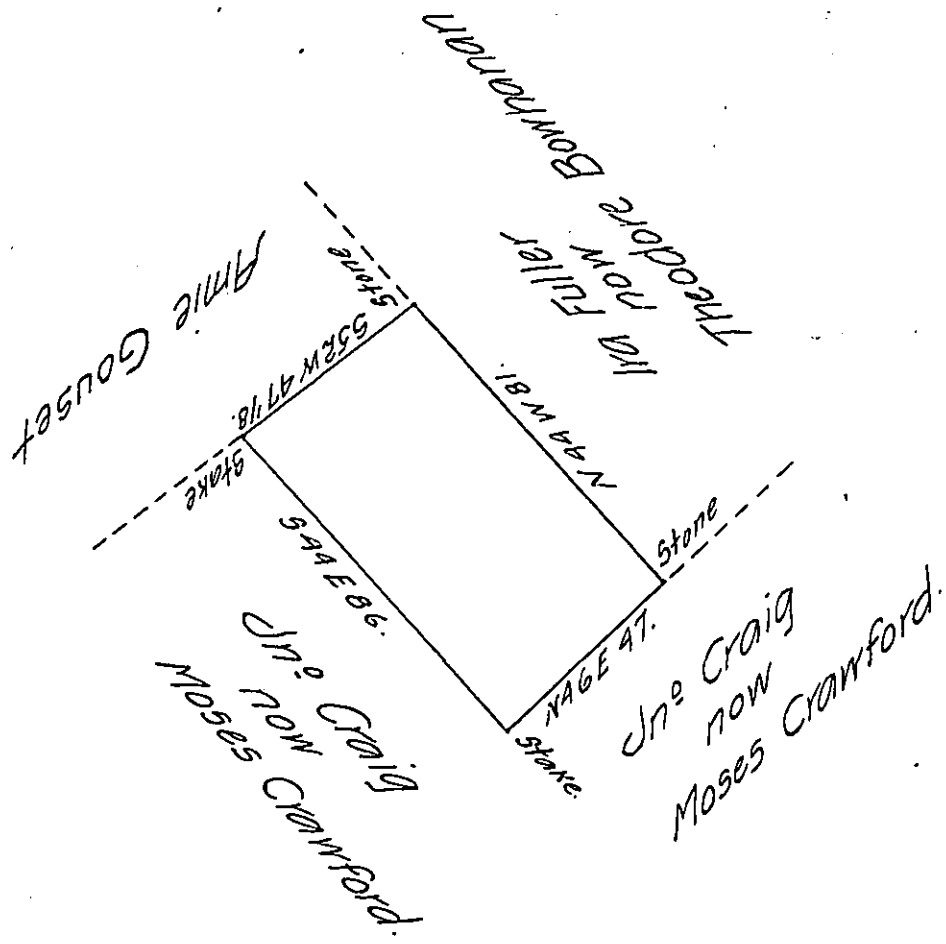 Theodore Bowhanan
now
Ira Fuller
Amie Gouset
Stone
S52W 47'18.
Stake
N44W 81.
Stone
S44E 86.
N46E 47.
Stake.
Jnº Craig
now
Moses Crawford.
Jnº Craig
now
Moses Crawford.